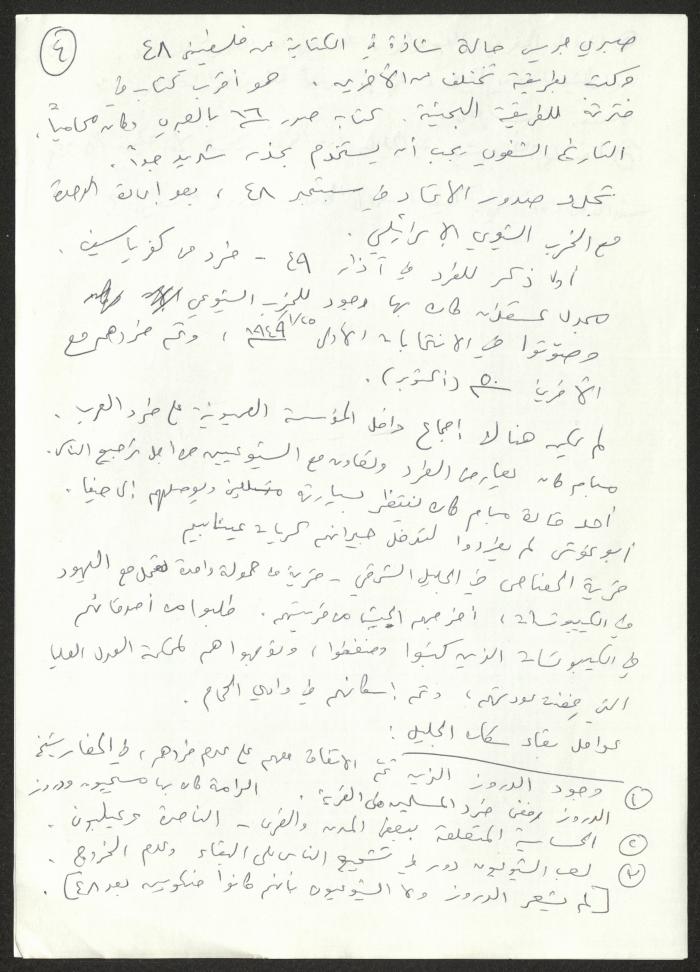 ٤
صبري جريس حالة شاذة في الكتابة عن فلسطينيي ٤٨
وكتب بطريقة تختلف عن الآخرين. هو أقرب كتاب في
فترته للطريقة البحثية. كتابه صدر ٦٦ بالعبري وكان محامياً.
التاريخ الشفوي يجب أن يستخدم بحذر شديد جداً.
تجدد صدور الاتحاد في سبتمبر ٤٨، بعد إعادة الوحدة
مع الحزب الشيوعي الإسرائيلي.
أول ذكر للطرد في آذار ٤٩ - طرد من كفر ياسيف.
مجدل عسقلان كان بها وجود للحزب الشيوعي
وصوتوا في الانتخابات الأولى ١/٢٥/١٩٤٩، وتم طردهم مع
الآخرين ٥٠ (أكتوبر).
لم يكن هنالك إجماع داخل المؤسسة الصهيونية على طرد العرب.
مبام كان يعارض الطرد وتعاون مع الشيوعيين من أجل ترجيع الناس.
أحد قادة مبام كان ينتظر بسيارته متسللين ويوصلهم إلى حيفا.
أبو غوش لم يطردوا لتدخل جيرانهم كريات عينابيم
خربة في الجليل الشرقي - قرية من حمولة واحدة تعمل مع اليهود
في الكيبوتسات، أخرجهم الجيش من قريتهم. طلبوا من أصدقائهم
في الكيبوتسات الذين كتبوا وضغطوا، وتوجهوا هم لمحكمة العدل العليا
التي رفضت عودتهم، وتم إسكانهم في وادي الحمام.
عوامل بقاء سكان الجليل:
١ وجود الدروز الذين تم الاتفاق معهم على عدم طردهم، في
الدروز رفض طرد المسلمين من القرية. الرامة كان بها مسيحيون ودروز
٢ الحساسية المتعلقة ببعض المدن والقرى - الناصرة وعيلبون.
٣ لعب الشيوعيون دور في تشجيع الناس على البقاء وعدم الخروج.
[لم يشعر الدروز ولا الشيوعيون بأنهم كانوا منكوبين بعد ٤٨].